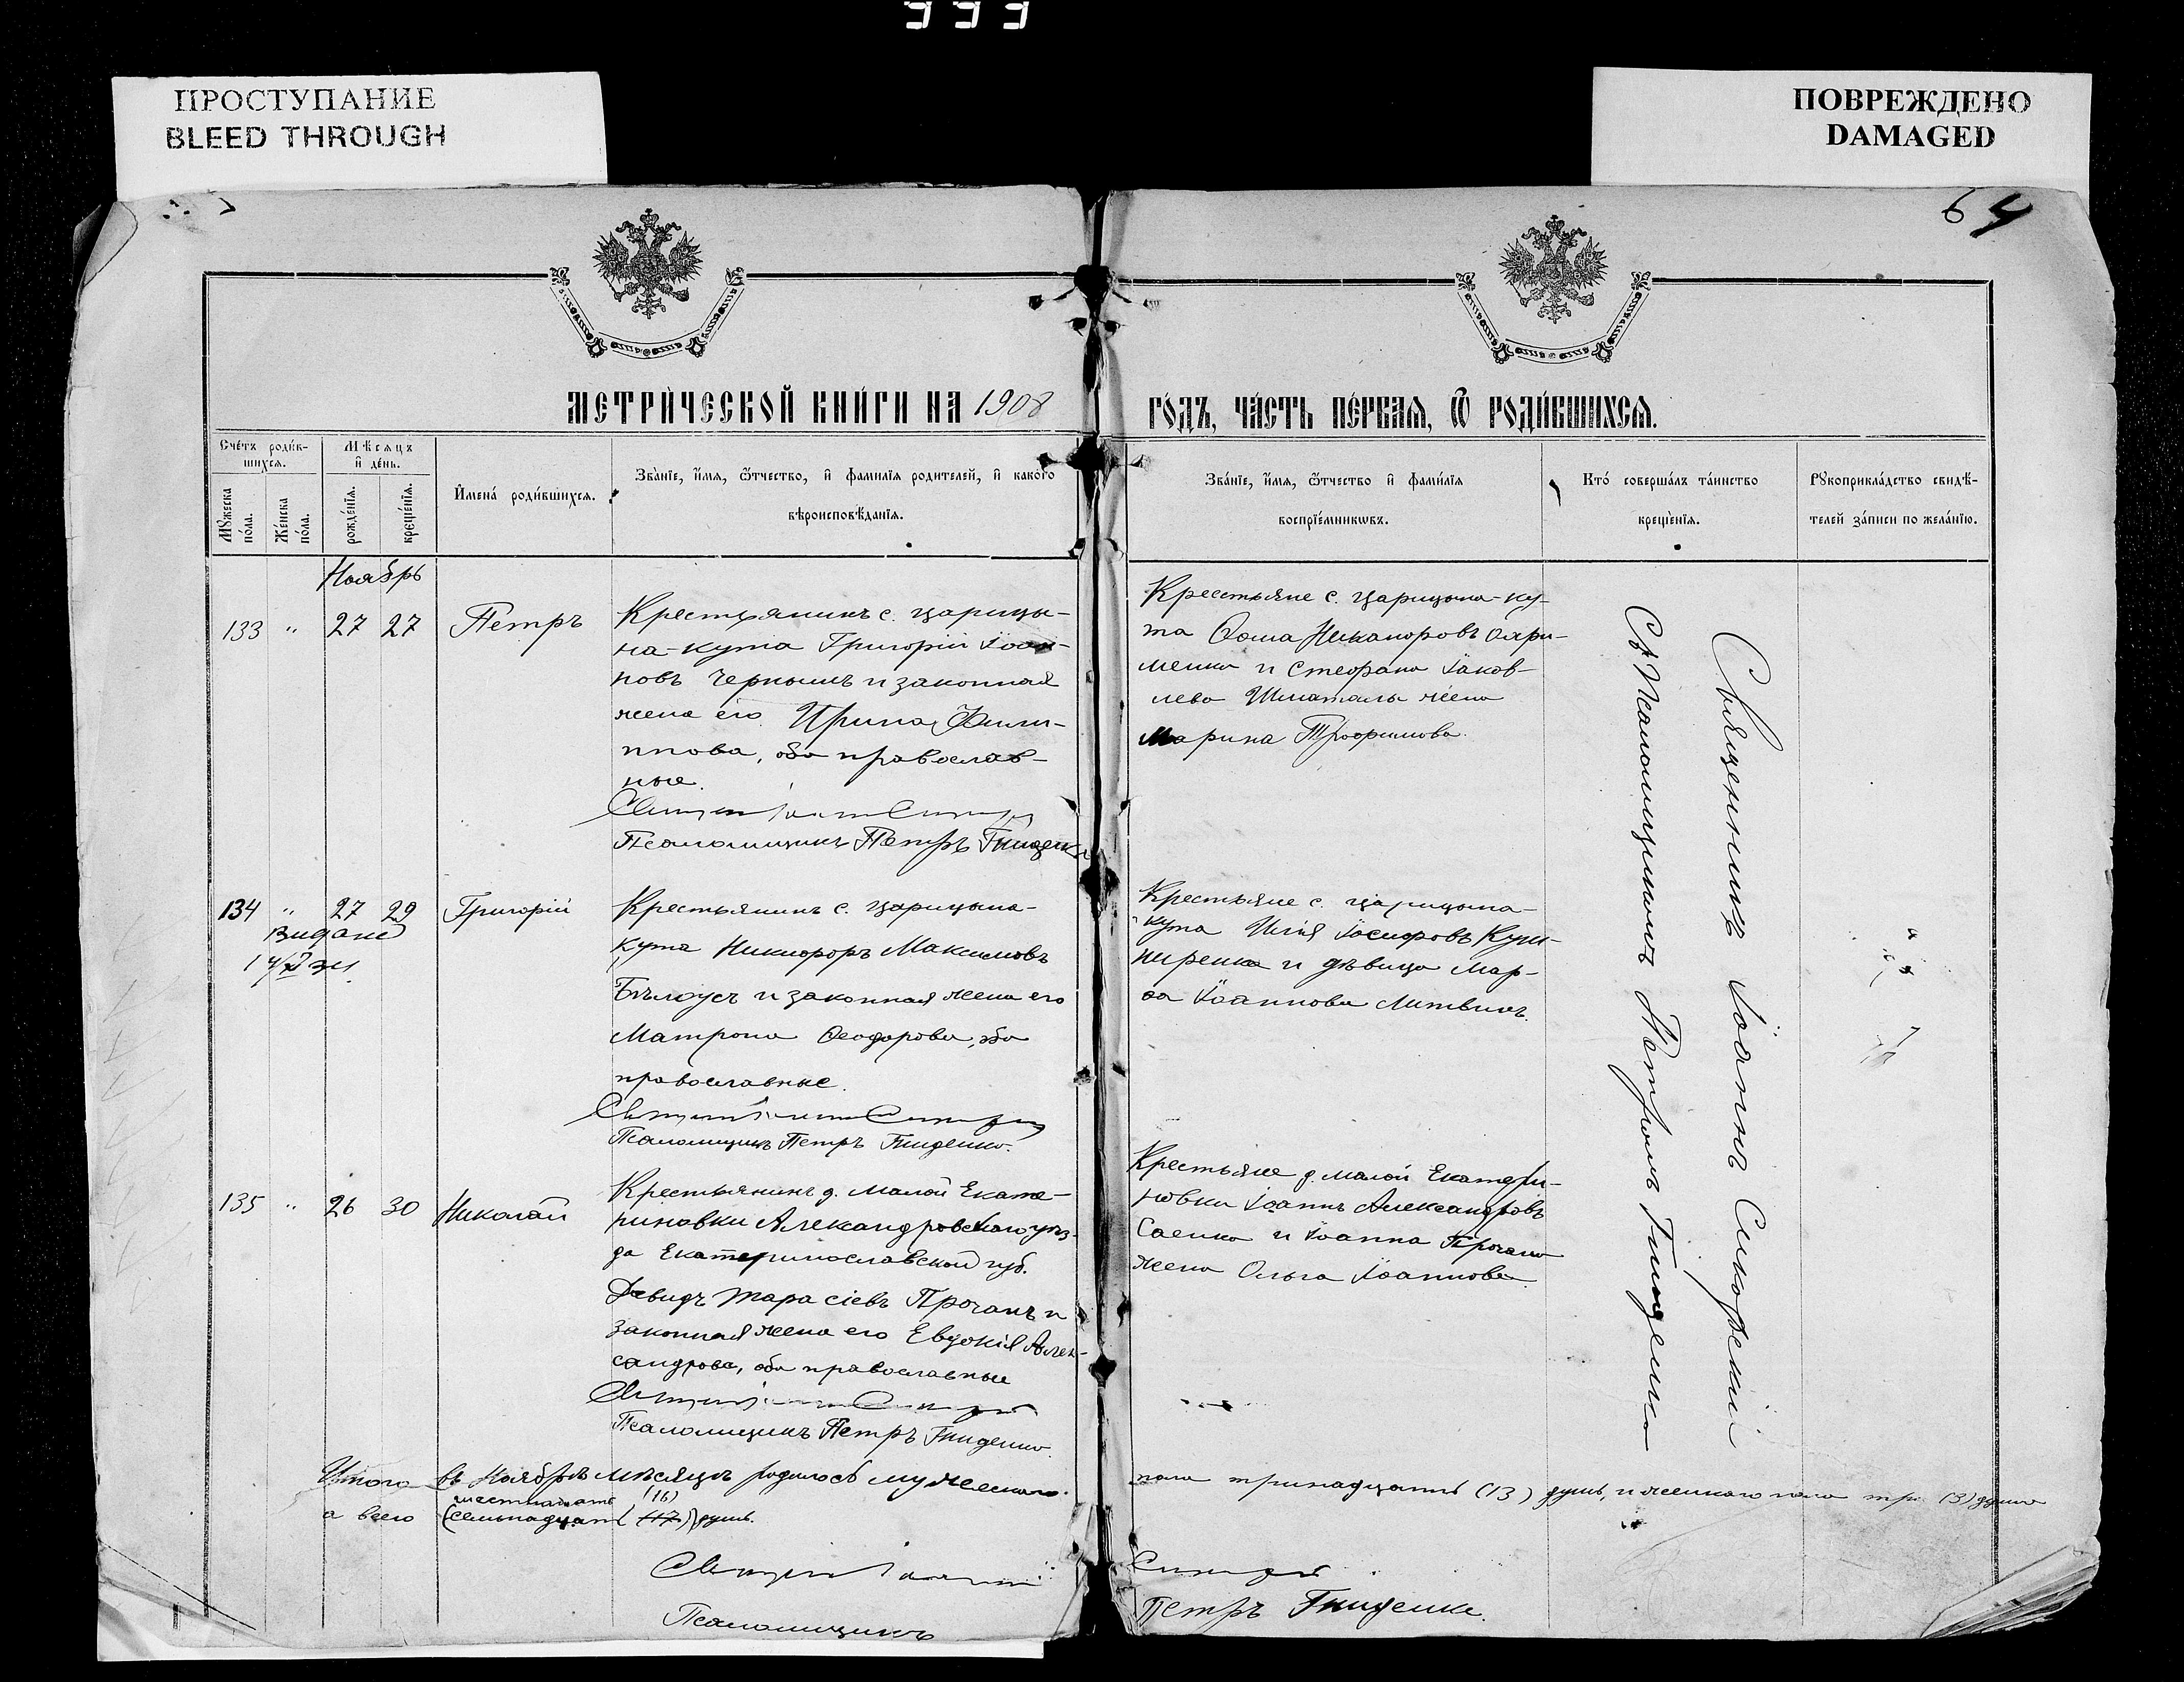 333
ПРОСТУПАНИЕ
BLEED THROUGH
ПОВРЕЖДЕНО
DAMAGED
64
МЕТРИ́ЧЕСКОЙ КНИ́ГИ НА 1908
ГО́ДЪ, ЧА́СТЬ ПЕ́РВАѦ, Ѿ РОДИ́ВШИХСѦ.
Сче́тъ роди́в-
шихсѧ.
Мꙋжеска по́ла.
Же́нска по́ла.
Мѣ́сѧцъ
и҆ де́нь.
рожде́нїѧ.
креще́нїѧ.
И҆мена̀ роди́вшихсѧ.
Зва́нїе, и҆́мѧ, ѻ҆́тчество, и҆ фами́лїѧ роди́телей, и҆ како́го
вѣроисповѣ́данїѧ.
Зва́нїе, и҆́мѧ, ѻ҆́тчество и҆ фами́лїѧ
воспрїе́мникѡвъ.
Кто́ соверша́лъ та́инство
креще́нїѧ.
Рꙋкоприкла́дство свидѣ́-
телей за́писи по жела́нїю.
Ноябрь
133 " 27 27 Петръ
Крестьянинъ с. Царицы-
на-кута Григорій Іоан-
новъ Чернышъ и законная
жена его Ирина Фили-
ппова, оба православ-
ные.
Псаломщикъ Петръ Гниденко
Крестьяне с. Царицына-ку-
та Ѳома Никаноровъ Охри-
менко и Стефана Іаков-
лева Шматалы жена
Марина Трофимова.
134 " 27 29 Григорій
Видане
Крестьянинъ с. Царицына-
кута Никифоръ Максимовъ
Бѣлоусъ и законная жена его
Матрона Ѳеодорова, оба
православные.
Псаломщикъ Петръ Гниденко.
Крестьяне с. Царицына-
кута Илія Іосифовъ
и дѣвица Мар-
ѳа Іоаннова Литвинъ.
135 " 26 30 Николай
Крестьянинъ д. Малой Екате-
риновки Александровскаго уѣз-
да Екатеринославской губ.
Давидъ Тарасіевъ Проганъ и
законная жена его Евдокія Алек-
сандрова, оба православные
Псаломщикъ Петръ Гниденко
Крестьяне д. Малой Екатери-
новки Іоаннъ Александровъ
Саенко и Іоанна Прогана
жена Ольга Іоаннова.
Священникъ Іоаннъ
Съ Псаломщикомъ Петромъ Гниденко
Итого въ Ноябрѣ мѣсяцѣ родилось мужескаго
пола тринадцать (13) душъ, и женскаго пола три (3) души
шестнадцать (16)
а всего (семьнадцать (17)) душъ.
Псаломщикъ
Петръ Гниденко.